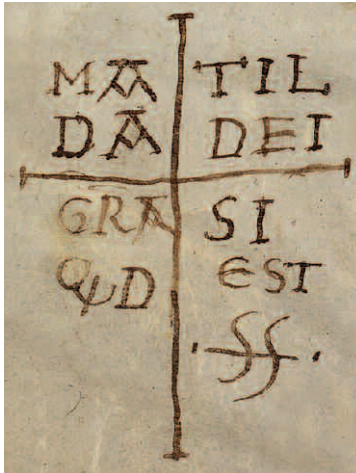 MA TIL
DA DEI
GRA SI
QUD EST
.SS.